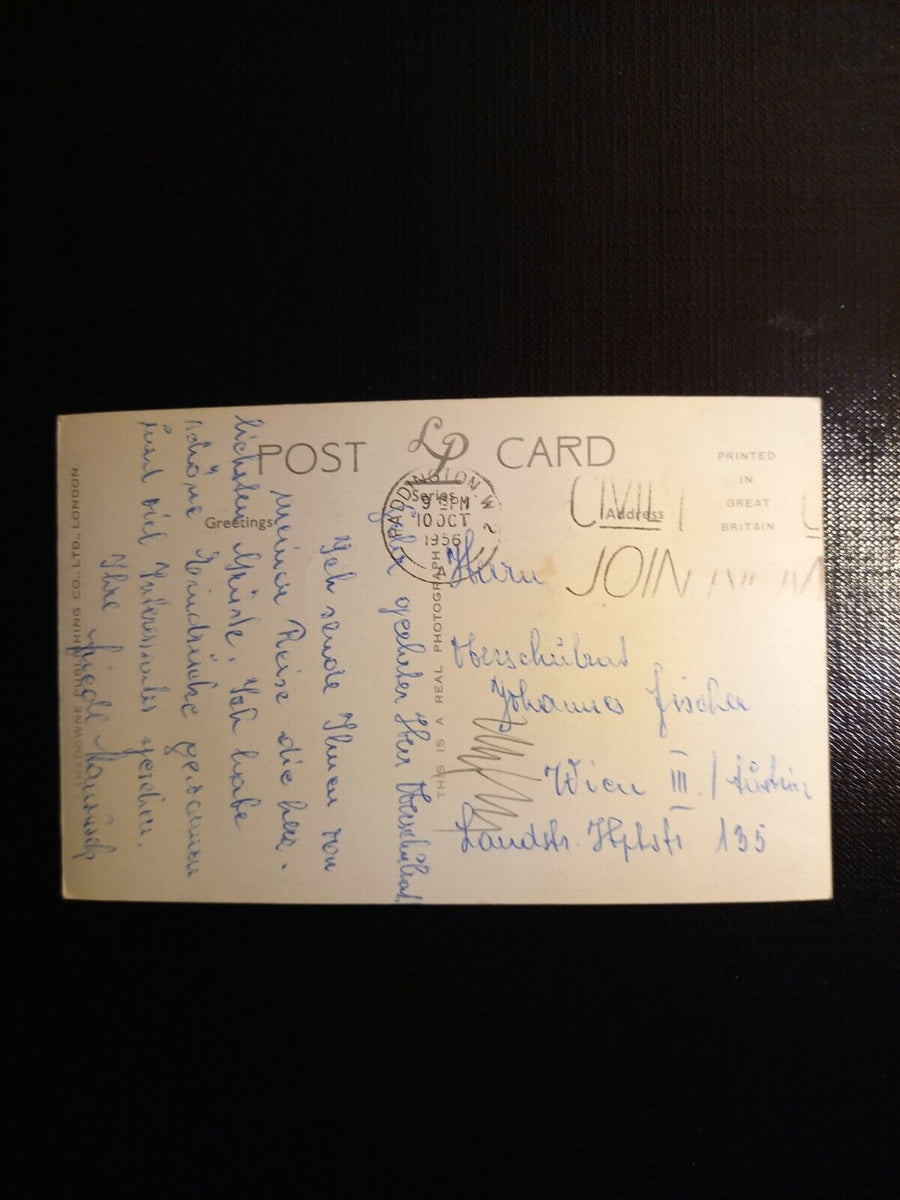 POST LP CARD
Series
Greetings
Address
PRINTED
IN
GREAT
BRITAIN
PADDINGTON W. 2
9 PM
10 OCT
1956
A
CIVIL
JOIN
THIS IS A REAL PHOTOGRAPH
LANSDOWNE PUBLISHING CO., LTD., LONDON.
Sehr geehrter Herr Oberschulrat,
Ich sende Ihnen von
meiner Reise die herz-
lichsten Grüße. Ich habe
schöne Eindrücke gewonnen
und viel Interessantes gesehen.
Ihre
Herrn
Oberschulrat
Johannes Fischer
Wien III / Austria
Landstr. Hptstr 135